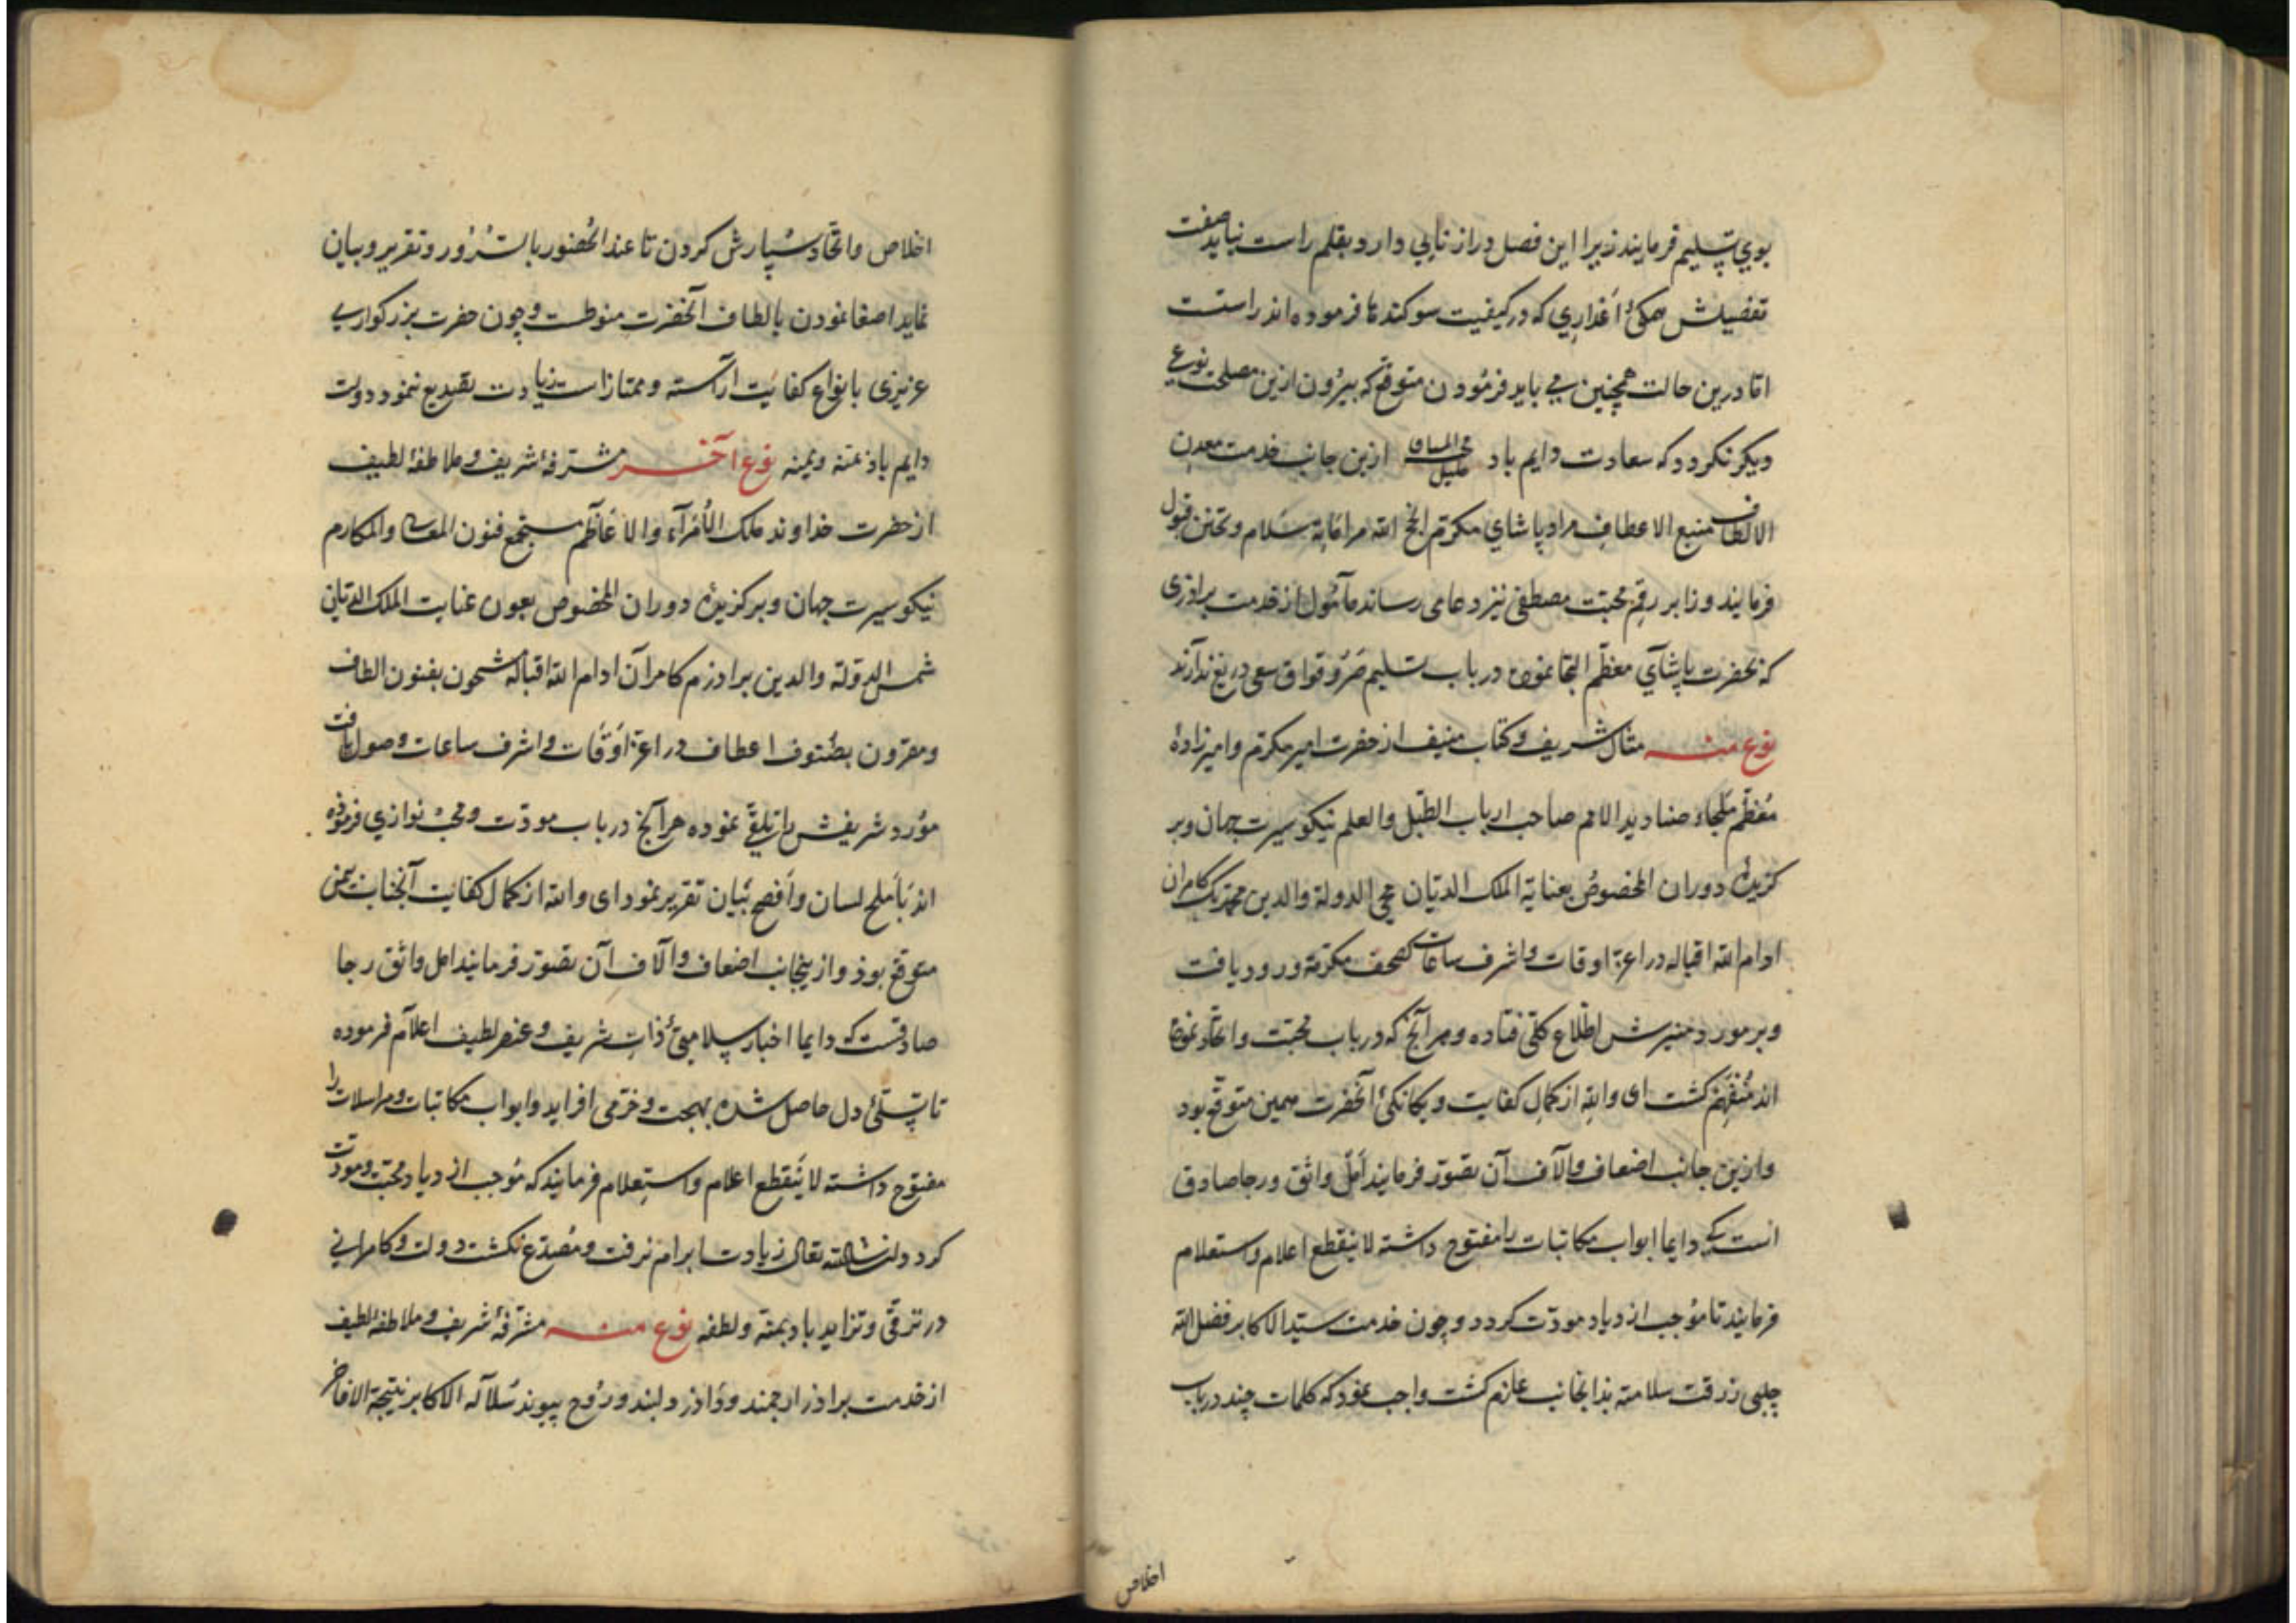 بوي تسليم فرمايند زيرا اين فصل دراز نايي دارد و بقلم راست نيايد صفت
تفصيلش همكئ اعذاري كه در كيفيت سوكندها فرموده اند راستست
امّا درين حالت همچنين مي بايد فرمودن متوقع كه بيرون ازين مصلحت نوعي
ديكر نكردد كه سعادت دايم باد ازين جانب خدمت معدن
الالطاف منبع الاعطاف مراد پاشاي مكرم سلام و تحنن قبول
فرمايند و زابر رقم محبّت مصطفى نيز دعا مى رساند مأمول از خدمت برادرى
كه بحضرت پاشاي معظّم التجا نموده در باب تسليم سعى دريغ ندارند
نوع منه مثال شريف و كتاب منيف از حضرت امير مكرّم و اميرزادهٔ
معظّم ملجاء صناديد الامم صاحب ارباب الطّبل والعلم نيكو سيرت جهان و بر
كزيدهٔ دوران المخصوص بعناية الملك الديّان محيي الدولة والدين محمّد بك كامران
ادام الله اقباله در اعزّ اوقات و اشرف ساعات كصحف مكرّمة ورود يافت
و بر موز ضميرش اطّلاع كلّى فتاده و هرآنچ كه در باب محبّت و اتّحاد نموده
اند مُتفهّم كشت اى والله از كمال كفايت و يكانكئ آنحضرت همين متوقّع بود
و ازين جانب اضعاف و الآف آن تصوّر فرمايند امل واثق و رجا صادق
انست كه دايما ابواب مكاتبات را مفتوح داشته لا ينقطع اعلام و استعلام
فرمايند تا مُوجب ازدياد مودّت كردد و چون خدمت سيّد الاكابر فضل الله
چلبى رزقت سلامته بذانجانب عازم كشت واجب نمود كه كلمات چند در باب
اخلاص
اخلاص و اتّحاد سپارش كردن تا عند الحضور بالسّرور و تقرير و بيان
نمايد اصغا نمودن بالطاف آنحضرت منوطست و چون حضرت بزركوارى
عزيزى بانواع كفايت آراسته و ممتاز است زيادت تصديع ننمود دولت
دايم باد بمنه و يمنه نوع آخر مشرّفهٔ شريف و ملاطفهٔ لطيف
از حضرت خداوند ملك الأمرآء والاعاظم مستجمع فنون المعالى والمكارم
نيكو سيرت جهان و بركزيدهٔ دوران المخصوص بعون عنايت الملك الديّان
شمس الدولة والدين برادرم كامران ادام الله اقباله مشحون بفنون الطاف
و مقرون بصنوف اعطاف در اعزّ اوقات و اشرف ساعات وصول يافت
مورد شريفش را تلقّى نموده هرآنچ در باب مودّت و محب نوازي فرموده
اند باملح لسان و أفصح بيان تقرير نمود اى والله از كمال كفايت آنجناب همين
متوقع بوذ و ازينجانب اضعاف و الآف آن تصوّر فرمايند امل واثق رجا
صادقست كه دايما اخبار سلامتئ ذات شريف و عنصر لطيف اعلام فرموده
تا تسلّئ دل حاصل شده بهجت و خرّمى افزايد و ابواب مكاتبات و مراسلات را
مفتوح داشته لا ينقطع اعلام و استعلام فرمايند كه مُوجب ازدياد محبّت و مودّت
كردد ان شاالله تعالى زيادت ابرام نرفت و مُصدّع نكشت دولت و كامرانى
در ترقّى و تزايد باد بمنّه و لطفه نوع منه مشرّفهٔ شريف و ملاطفهٔ لطيف
از خدمت برادر ارجمند و دلبند و روح پيوند سلالة الاكابر نتيجة الافاخر